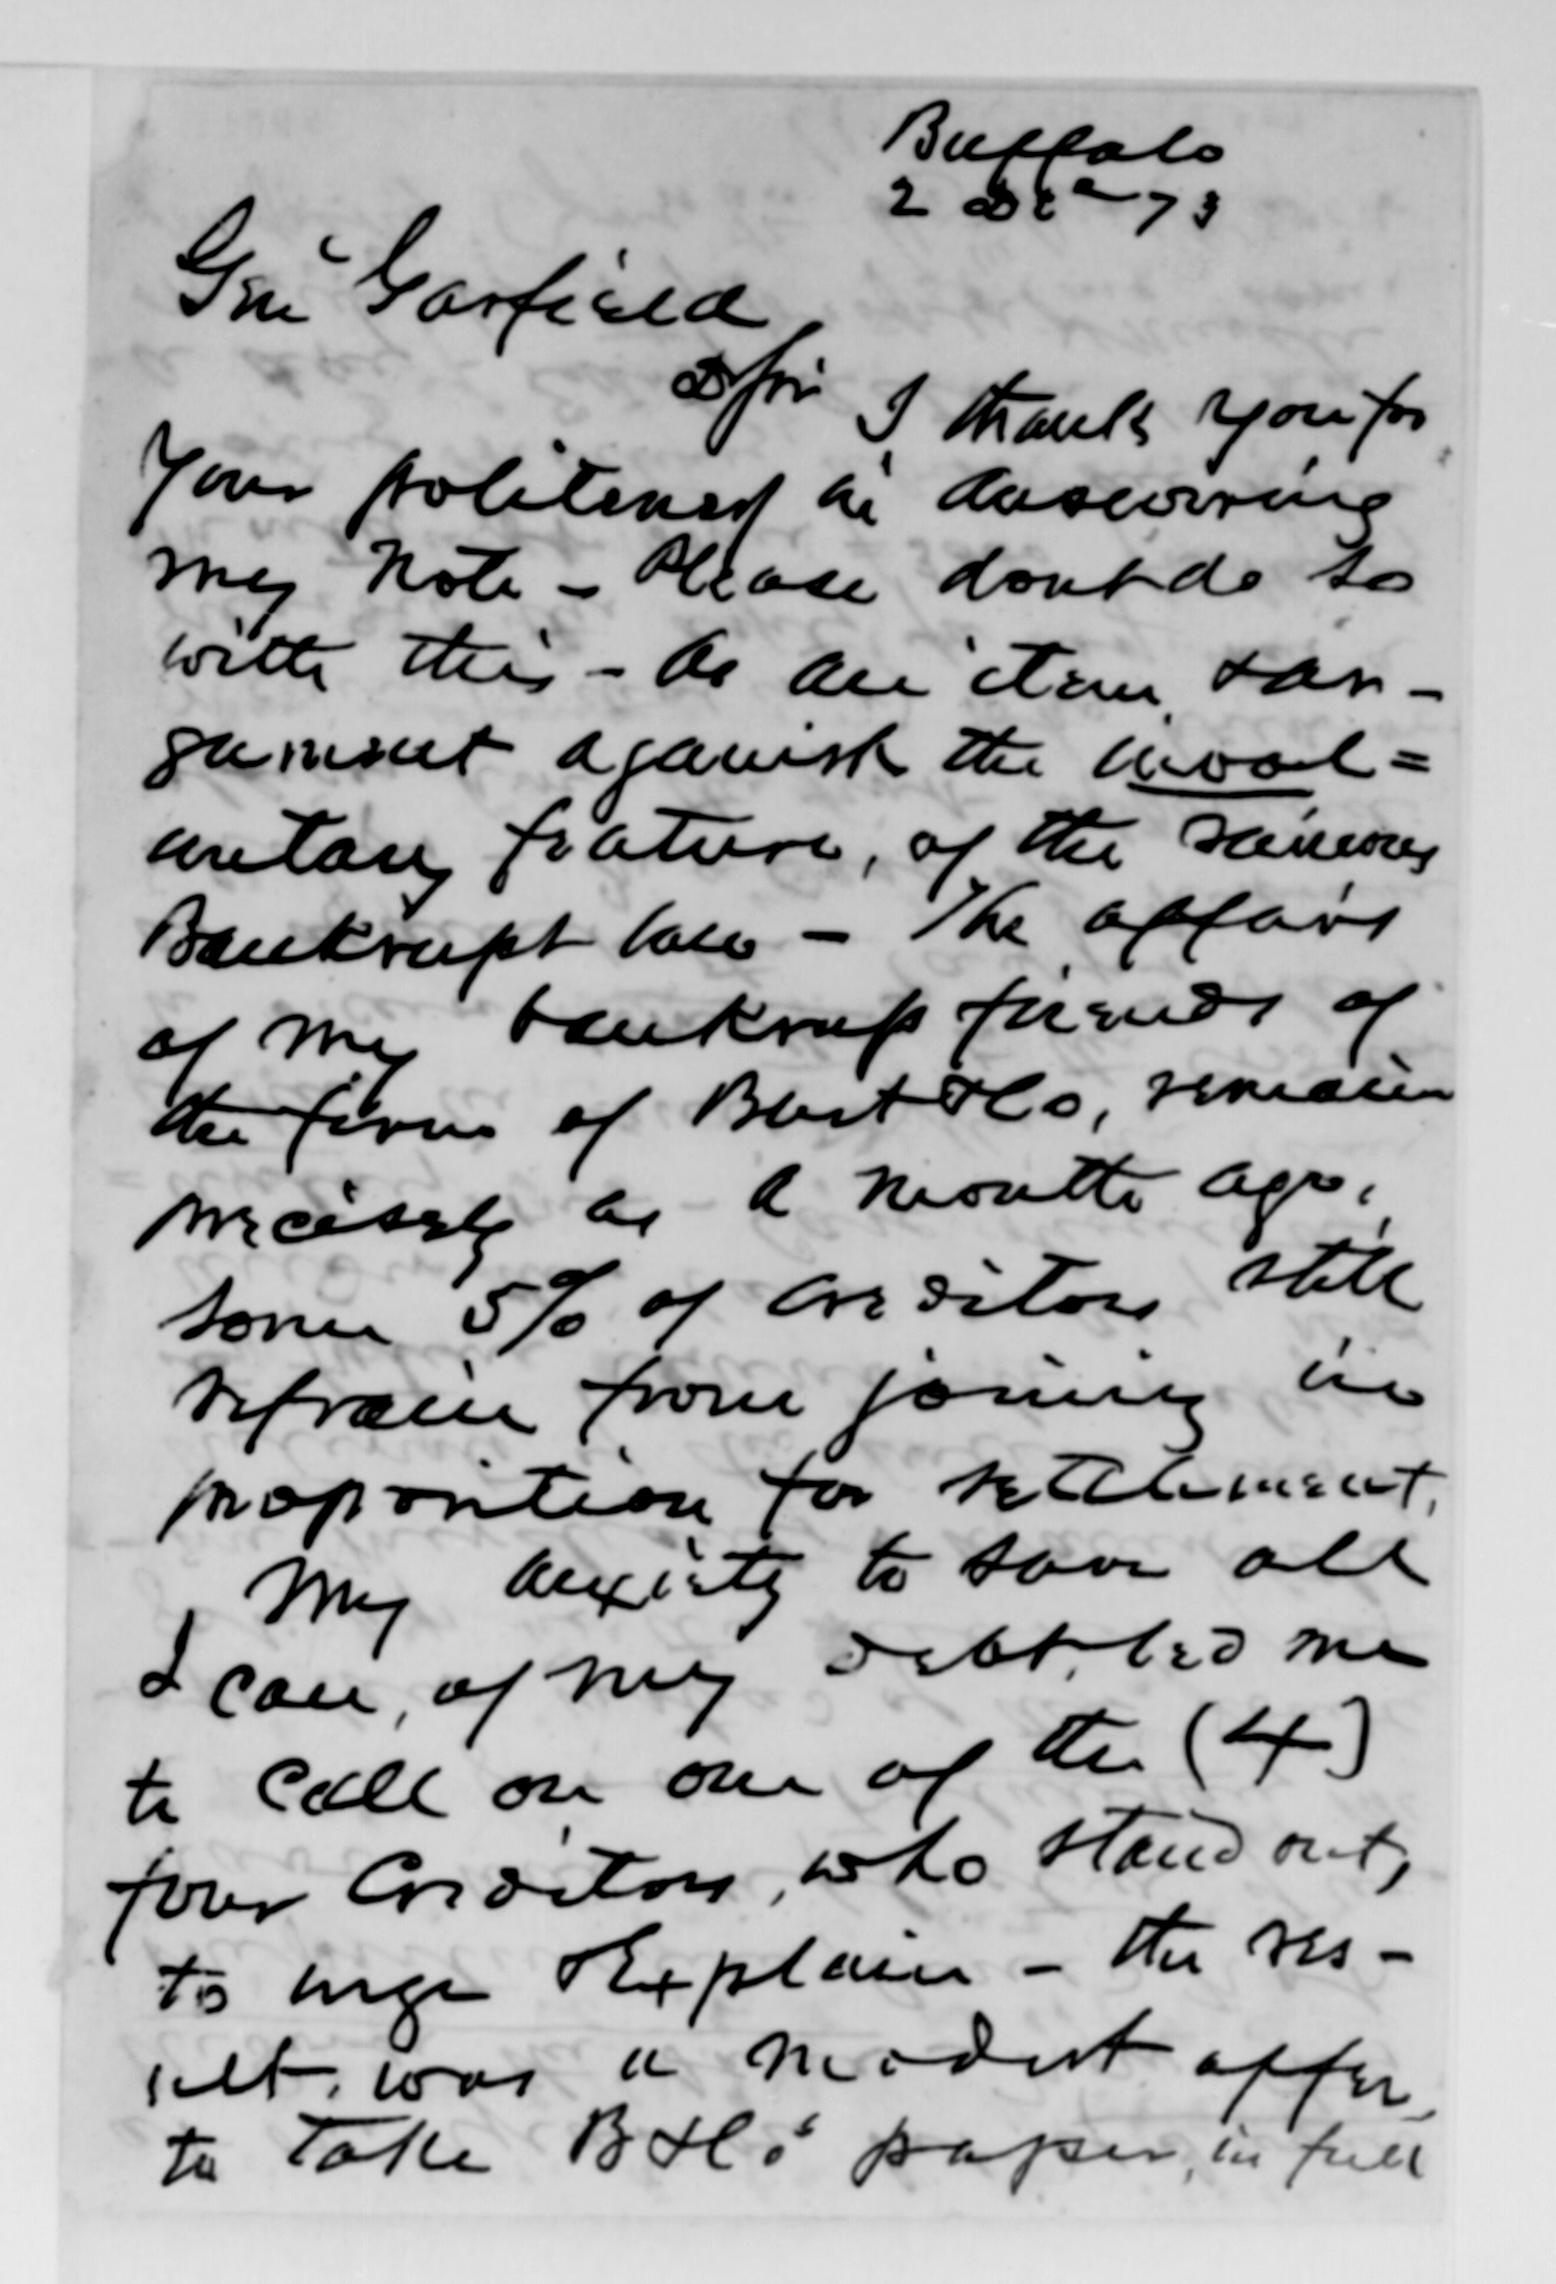 Buffalo
2 Dec 73
Gen Garfield,
D Sir I thank you for
your politeness in answering
my note - Please dont do so
with this - As an item, & ar-
gument against the invol=
untary feature, of the ruinous
Bankrupt law - The affairs
of my bankrupt friends of
the firm of & Co, remain
precisely as a month ago,
some 5% of creditors still
refrain from joining in
proposition for settlement.
My anxiety to save all
I can, of my debt, led me
to call on one of the (4)
four Creditors, who stand out,
to urge & Explain - the res-
ult, was a modest offer,
to take B & Co's paper, in full